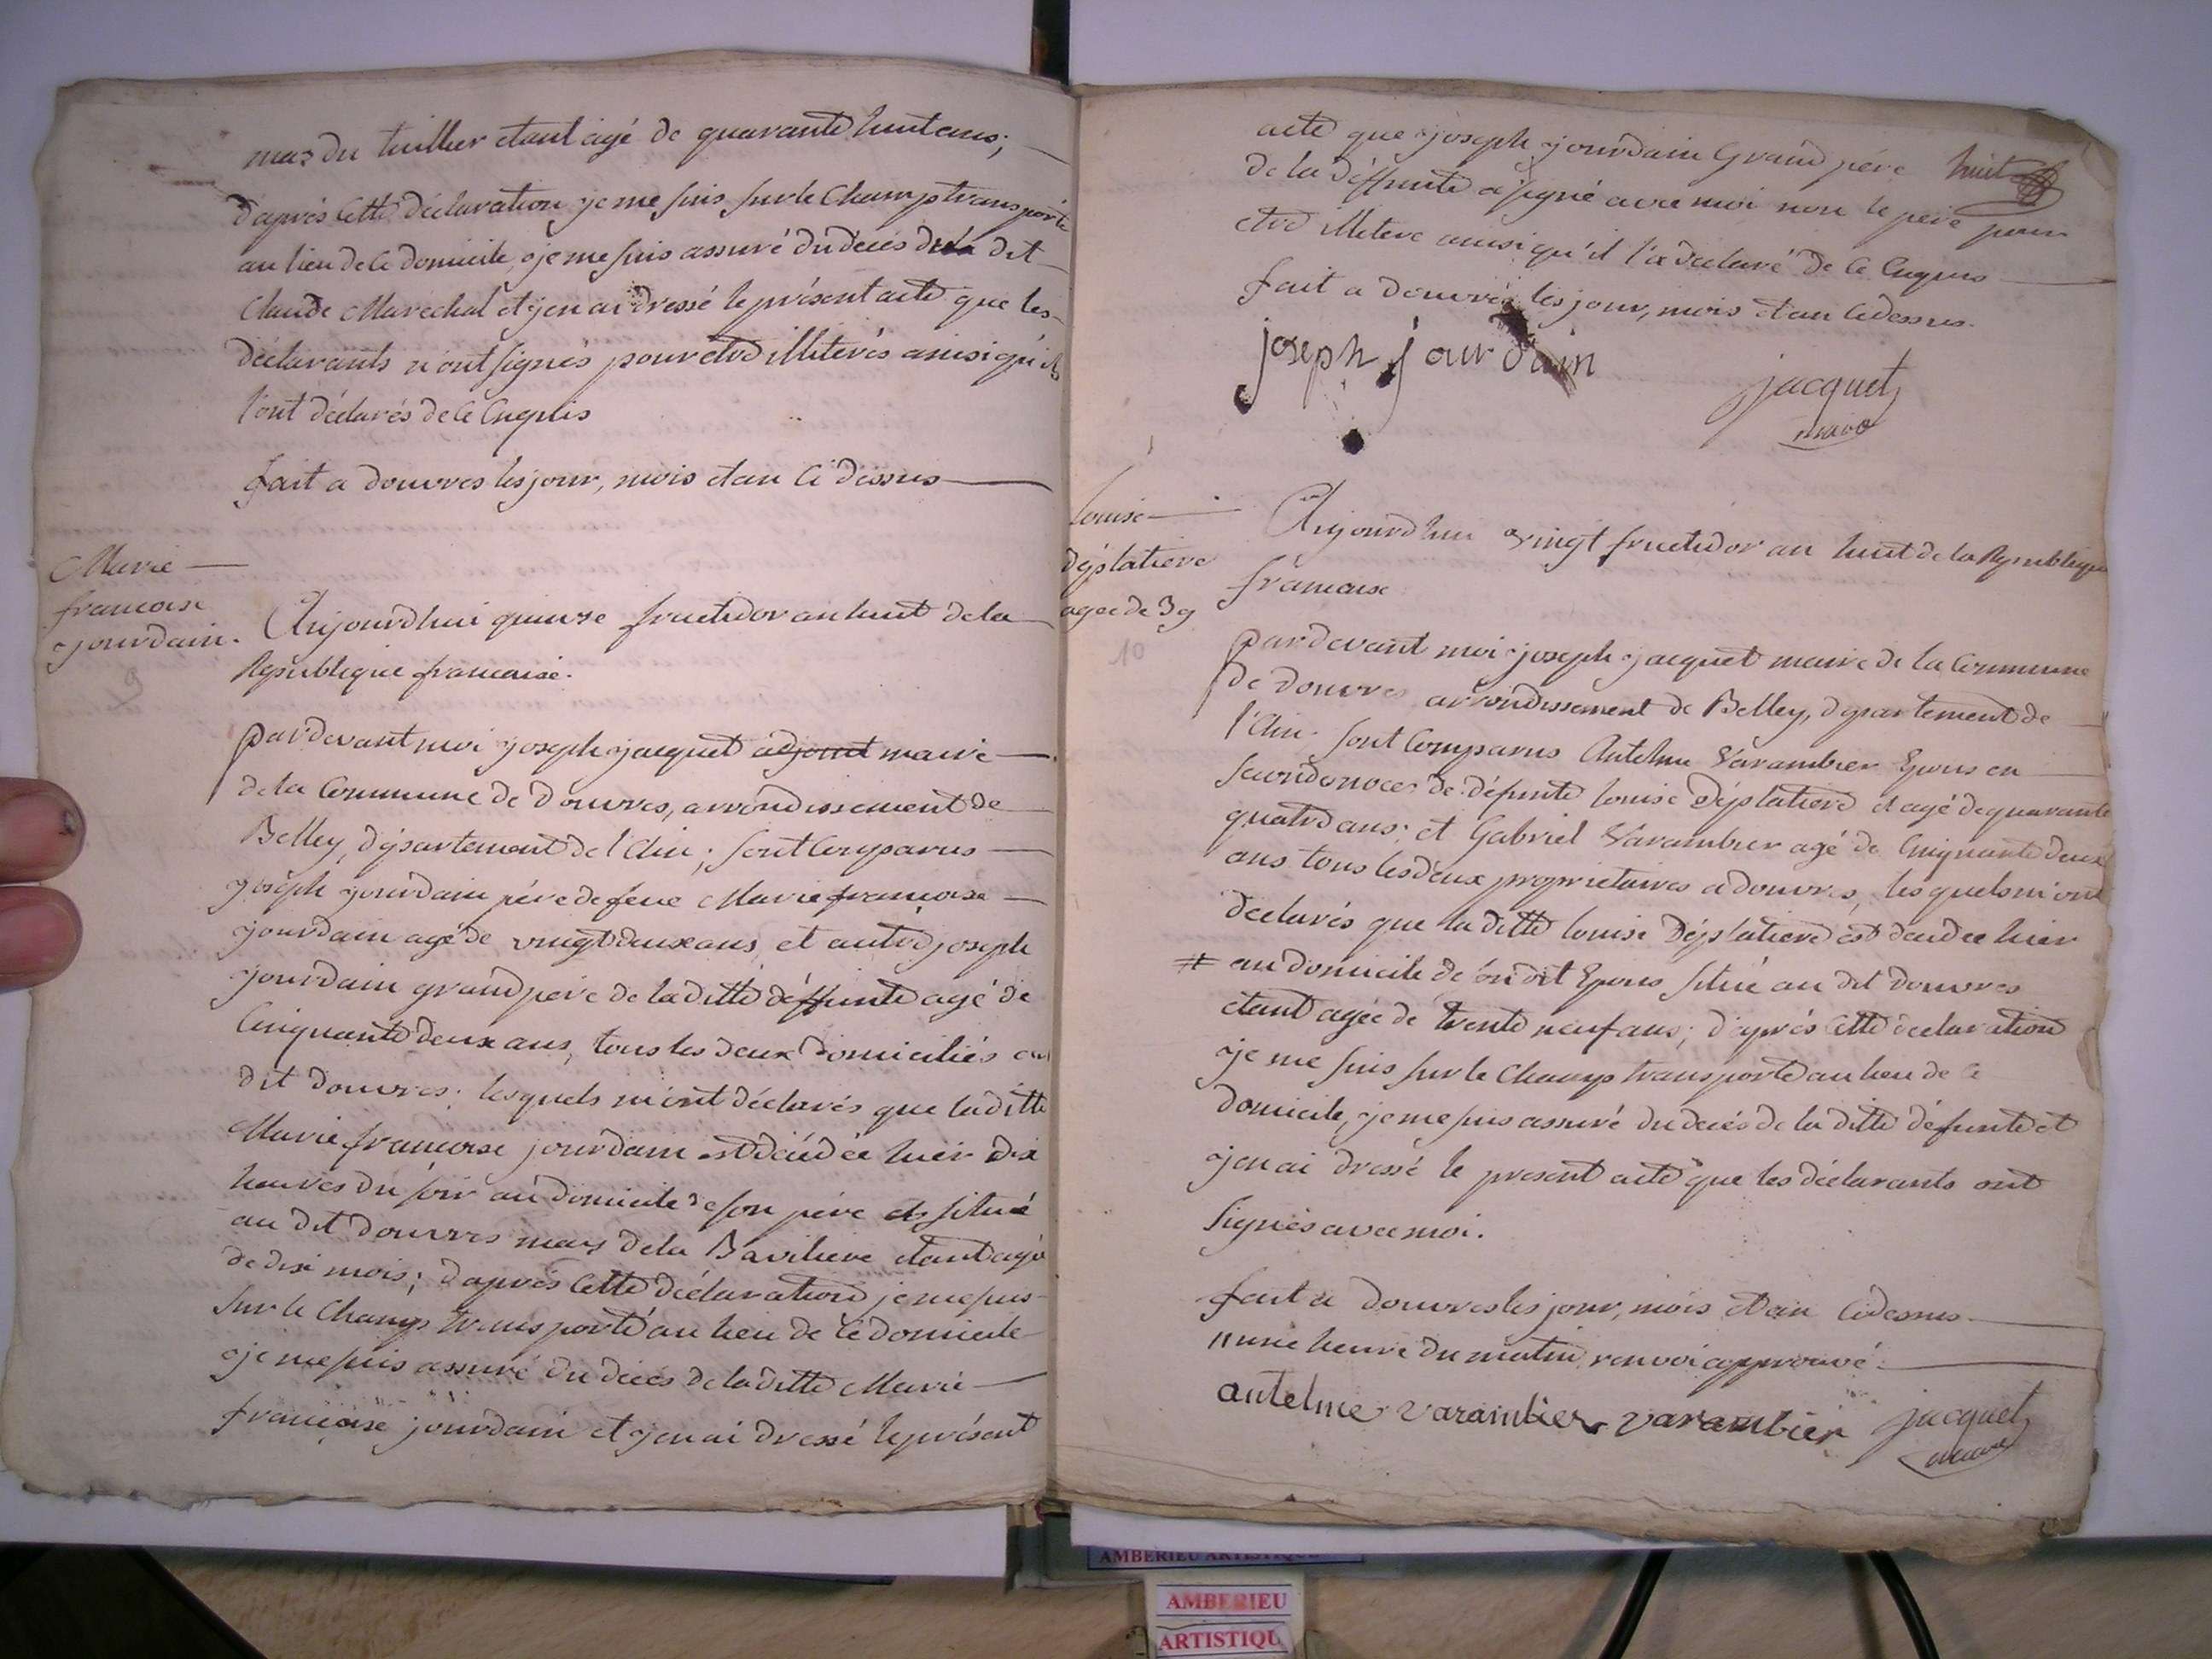 mas du tuillier etant agé de quarante huit ans;
d'après cette déclaration je me suis sur le champ transporté
au lieu de ce domicile, je me suis assuré du décès du dit
Claude Maréchal et j'en ai dressé le présent acte que les
déclarants n'ont signés pour etre illiterés ainsi qu'ils
l'ont déclarés de ce enquis
fait a douvres les jour, mois et an ci dessus
Marie
francoise
jourdain.
9
Aujourdhui quinze fructidor an huit de la
Republique francaise.
Pardevant moi joseph jacquet adjoint maire
de la Commune de Douvres, arrondissement de
Belley, département de l'Ain; sont comparus
joseph jourdain père de feue Marie francoise
jourdain agé de vingt deux ans, et autre joseph
jourdain grand père de la ditte déffunte agé de
Cinquante deux ans, tous les deux domiciliés au
dit douvres; lesquels m'ont déclarés que la ditte
Marie francoise jourdain est décédée hier dix
heures du soir au domicile de son père situé
au dit douvres mas de la Baviliere etant agée
de dix mois; d'après cette déclaration je me suis
sur le champ transporté au lieu de ce domicile
je me suis assuré du décès de la ditte Marie
françoise jourdain et j'en ai dressé le présent
acte que joseph jourdain Grand père huit
de la déffunte a signé avec moi non le père pour
etre illiteré ainsi qu'il l'a déclaré de ce enquis
fait a douvres les jour, mois et an ci dessus.
joseph jourdain
jacquet
maire
Louise
Déplatiere
agée de 39
10
Aujourdhui vingt fructidor an huit de la Republique
francaise
Pardevant moi joseph jacquet maire de la Commune
de Douvres arrondissement de Belley, département de
l'Ain sont Comparus Antelme Varambier Epoux en
secondes noces de défunte Louise Déplatiere et agé de quarante
quatre ans; et Gabriel Varambier agé de Cinquante deux
ans tous les deux propriétaires a douvres, lesquels m'ont
déclarés que la ditte Louise Déplatiere est décédée hier
# au domicile de son dit Epoux situé au dit Douvres
etant agée de trente neuf ans; d'après cette déclaration
je me suis sur le champ transporté au lieu de ce
domicile, je me suis assuré du décès de la ditte défunte et
j'en ai dressé le present acte que les déclarants ont
signés avec moi.
fait a douvres les jour, mois et an ci dessus
# une heure du matin, renvoi approuvé.
antelme varambier varambier jacquet
maire
AMBERIEU ARTISTIQUE
AMBERIEU
ARTISTIQU